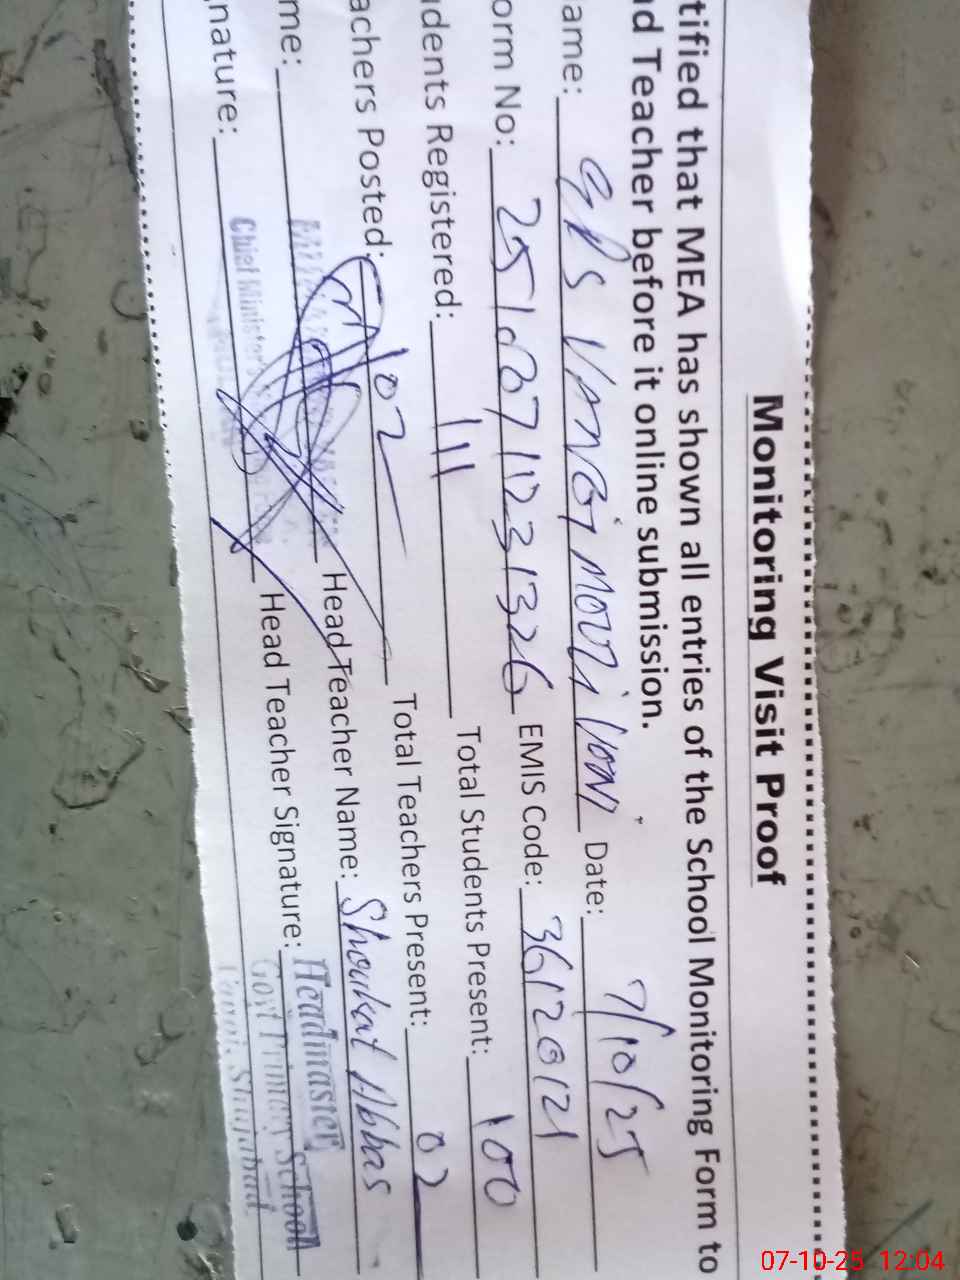 Monitoring Visit Proof
tified that MEA has shown all entries of the School Monitoring Form to
d Teacher before it online submission.
ame: GPS Date: 7/10/25
orm No: EMIS Code: 36120121
dents Registered: 111 Total Students Present: 100
achers Posted: 02 Total Teachers Present: 02
me: Head Teacher Name: Shoukat Abbas
gnature: Head Teacher Signature:
Chief Minister's
Headmaster
Govt Primary School
Shujabad
07-10-25 12:04